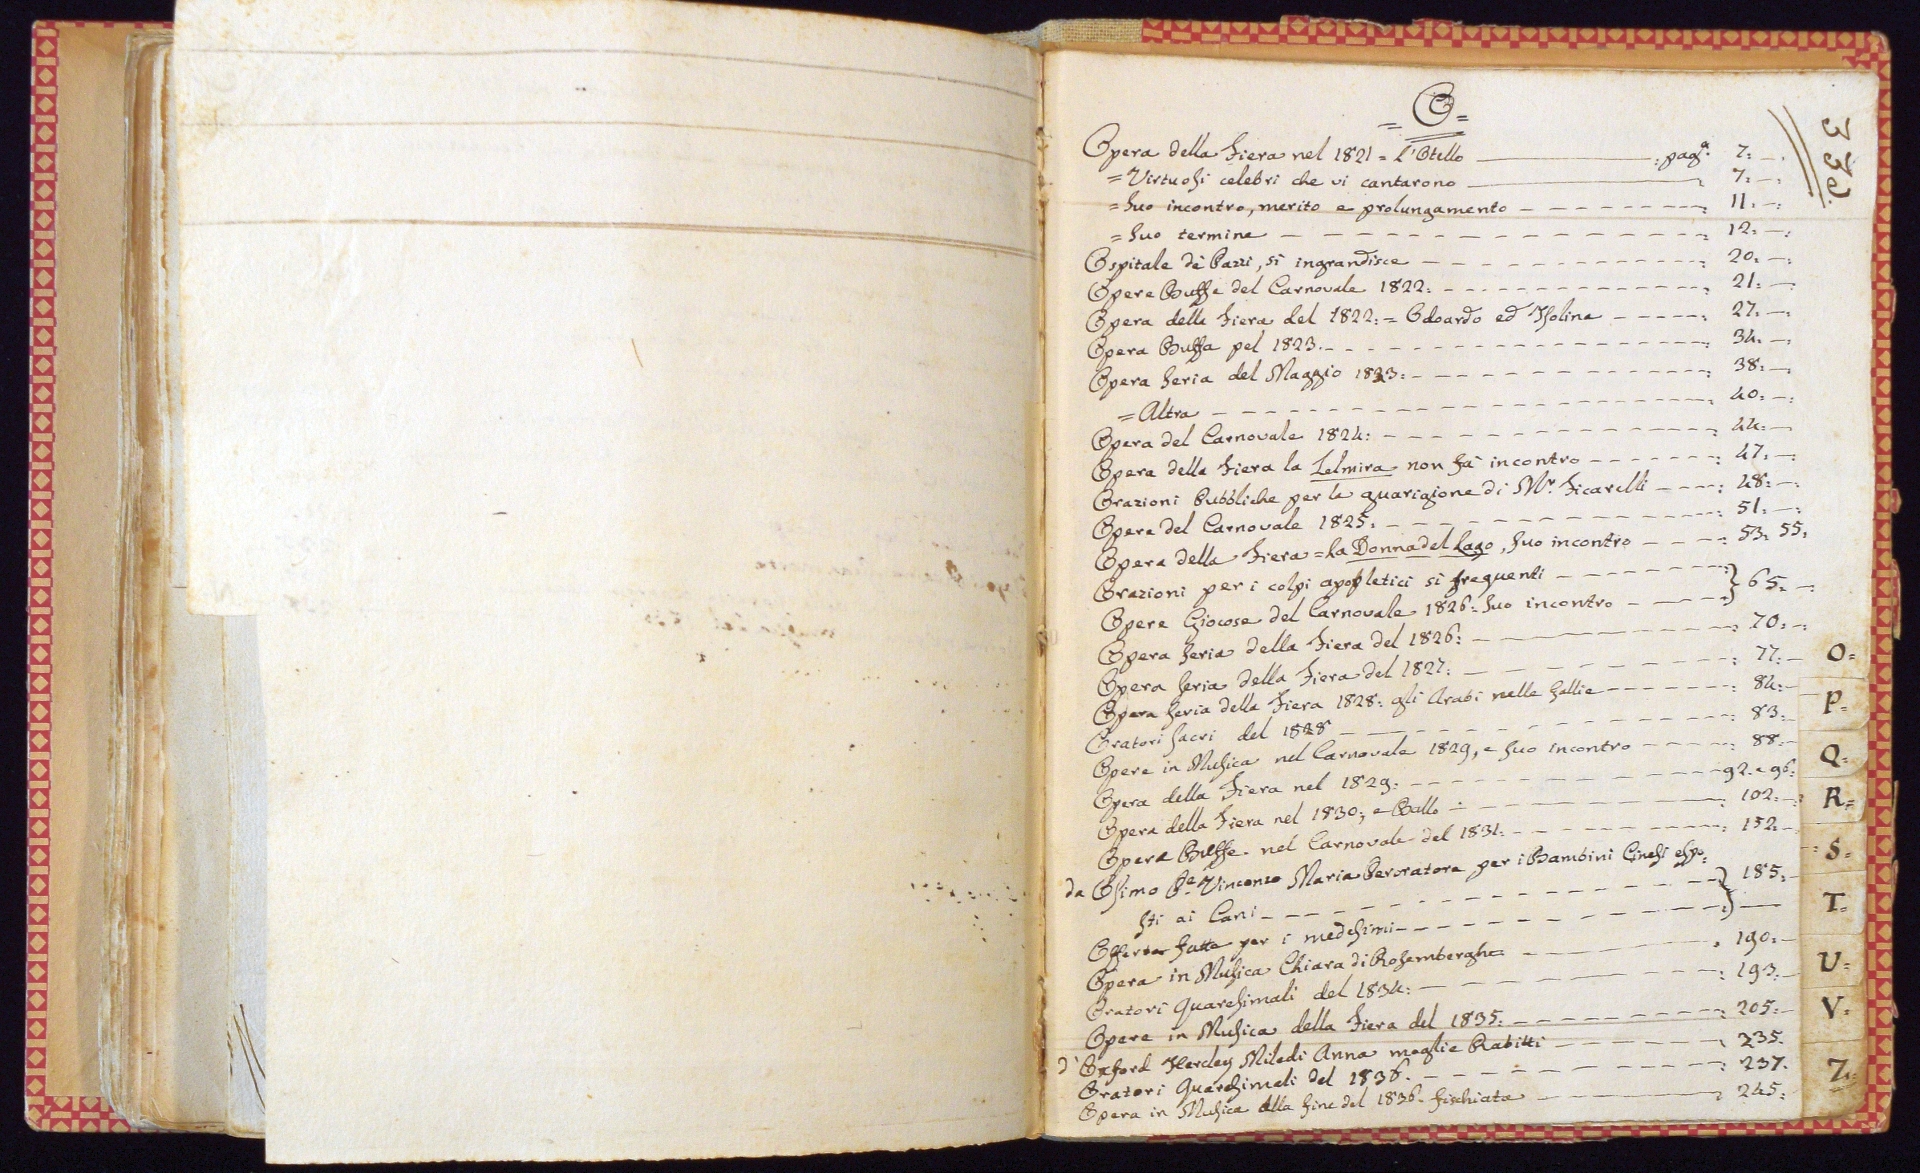 = O =
339.
Opera della Fiera nel 1821 = L'Otello ——— : pag.ª 7: — .
= Virtuosi celebri che vi cantarono ——— : 7: — :
= Suo incontro, merito e prolungamento – – – – : 11: — :
= Suo termine – – – – – – : 12: — :
Ospitale de Pazzi, si ingrandisce – – – – – : 20: — :
Opere Buffe del Carnovale 1822: – – – – – : 21: — :
Opera della Fiera del 1822: = Odoardo ed Isolina – – – – : 27: — :
Opera Buffa pel 1823. – – – – – : 34: — :
Opera Seria del Maggio 1823: – – – – – : 38: — :
= Altra – – – – – – : 40: — :
Opera del Carnovale 1824: – – – – – : 44: —
Opera della Fiera la Zelmira non fà incontro – – – – : 47: — :
Orazioni Pubbliche per la guarigione di M.r Ficarelli – – – : 48: — :
Opere del Carnovale 1825: – – – – – : 51: — :
Opera della Fiera = La Donna del Lago, suo incontro – – – : 53: 55:
Orazioni per i colpi apopletici sì frequenti – – – – : } 65: — :
Opere Giocose del Carnovale 1826: suo incontro – — – : }
Opera Seria della Fiera del 1826: — – – – – : 70: — :
Opera Seria della Fiera del 1827: — – – – – : 77: —
Opera Seria della Fiera 1828: gli Arabi nelle Gallie – – – – : 84: —
Oratori Sacri del 1828 — – – – – : 83: —
Opere in Musica nel Carnovale 1829, e suo incontro – – – – : 88: —
Opera della Fiera nel 1829: – – – – – 92. e 96:
Opera della Fiera nel 1830; e Ballo – – – – : 102: — :
Opere Buffe nel Carnovale del 1831: – – – – : 152: —
da Osimo P.e Vincenzo Maria Peroratore per i Bambini Cinesi espo:
sti ai Cani – – – – – } 185: —
Offerte fatte per i medesimi – – – – – : } ——
Opera in Musica Chiara di Rosembergh ——— : 190: —
Oratori Quaresimali del 1834: — – – – : 193: —
Opere in Musica della Fiera del 1835: – – – – : 205: —
d' Oxford Herley Miledi Anna moglie Rabitti – – – – : 235.
Oratori Quaresimali del 1836. – – – – : 237.
Opera in Musica alla fine del 1836. fischiata ——— : 245:
O =
P =
Q =
R =
S =
T =
U =
V =
Z =